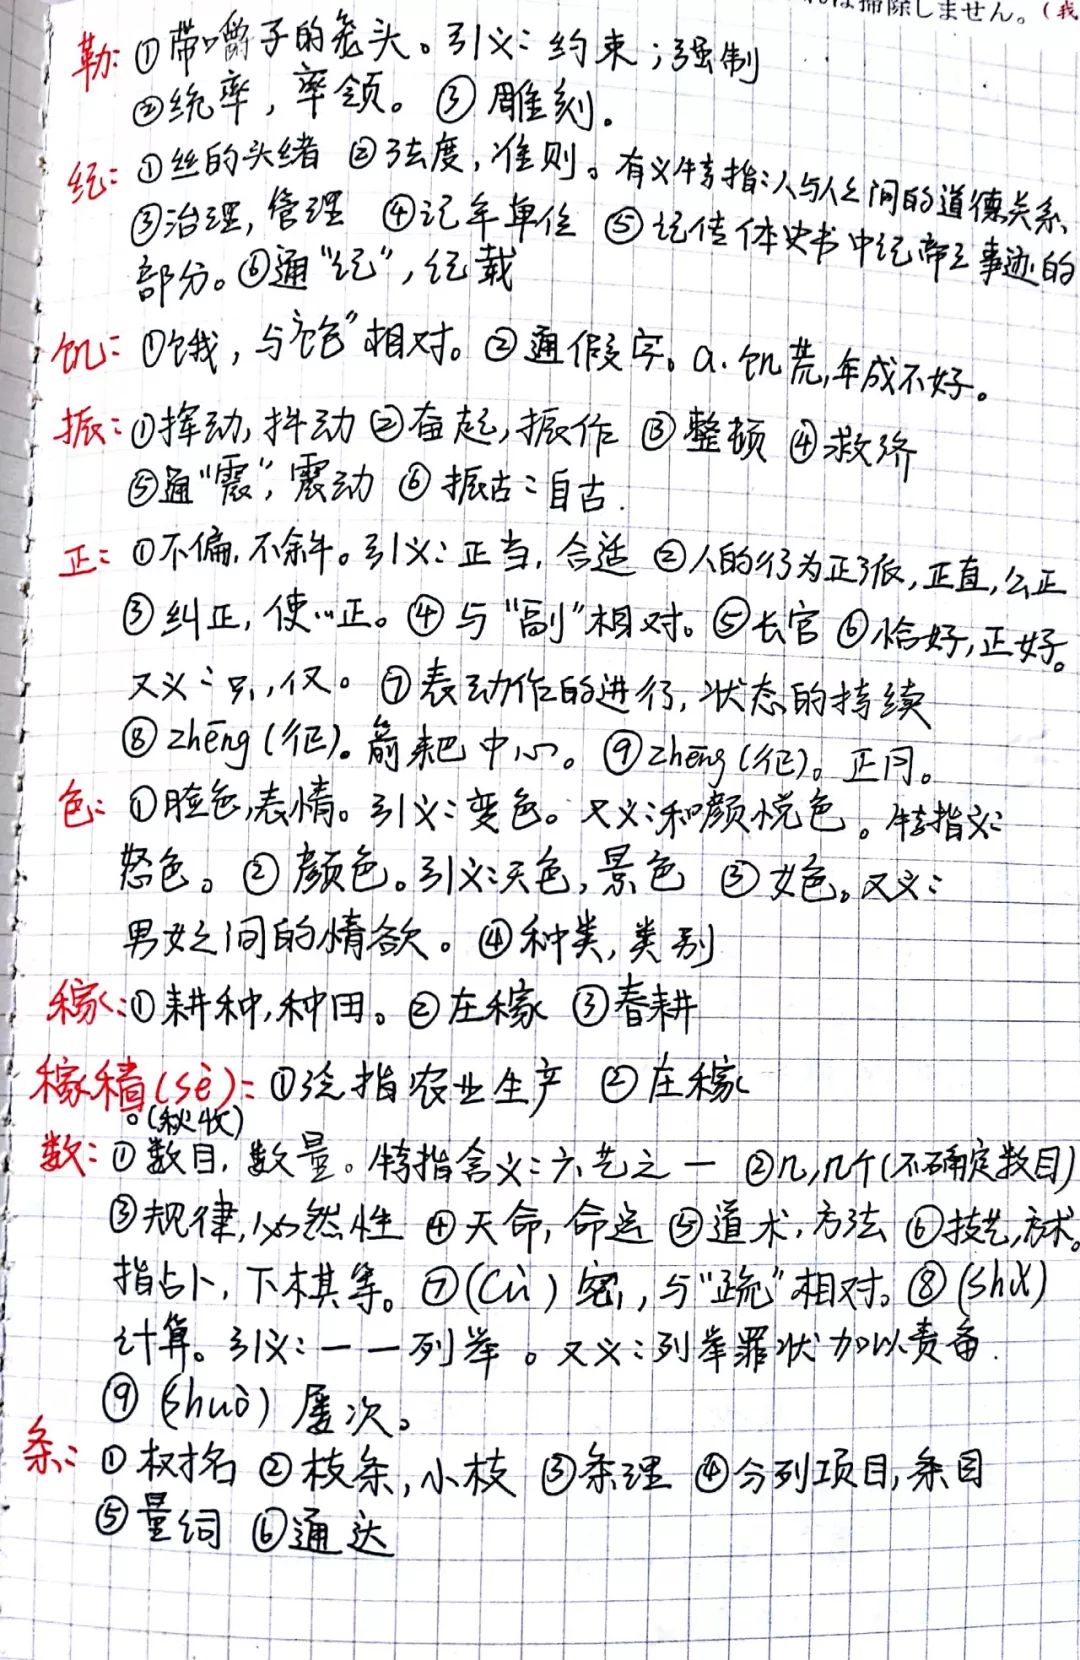 は掃除しません。(我
勒:①带嚼子的笼头。引义:约束;强制
②统率,率领。③雕刻。
纪:①丝的头绪 ②法度,准则。有义特指:人与人之间的道德关系
③治理,管理 ④记年单位 ⑤记传体史书中纪帝王事迹的
部分。⑥通“记”,纪载
饥:①饿,与“饱”相对。②通假字。a.饥荒,年成不好。
振:①挥动,抖动 ②奋起,振作 ③整顿 ④救济
⑤通“震”,震动 ⑥振古:自古.
正:①不偏,不斜。引义:正当,合适 ②人的行为正派,正直,公正
③纠正,使…正。④与“副”相对。⑤长官 ⑥恰好,正好。
又义:只,仅。⑦表动作的进行,状态的持续
⑧zhēng(征)。箭靶中心。⑨zhēng(征)。正月。
色:①脸色,表情。引义:变色。又义:和颜悦色。特指义:
怒色。②颜色。引义:天色,景色 ③女色。又义:
男女之间的情欲。④种类,类别
稼:①耕种,种田。②庄稼 ③春耕
稼穑(sè):①泛指农业生产 ②庄稼
。(秋收)
数:①数目,数量。特指含义:六艺之一 ②几,几个(不确定数目)
③规律,必然性 ④天命,命运 ⑤道术,方法 ⑥技艺,方术。
指占卜,下棋等。⑦(cù)密,与“疏”相对。⑧(shǔ)
计算。引义:一一列举。又义:列举罪状加以责备.
⑨(shuò)屡次。
条:①树名 ②枝条,小枝 ③条理 ④分列项目,条目
⑤量词 ⑥通达